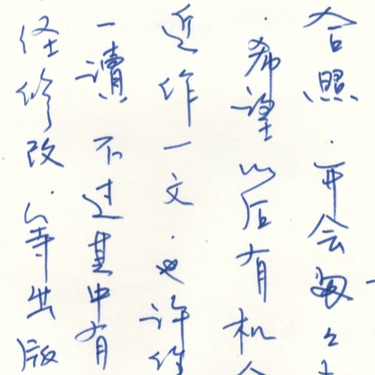 合照，开会匆匆
，希望以后有机会
近作一文，也许
一读，不过其中有
经修改，等出版